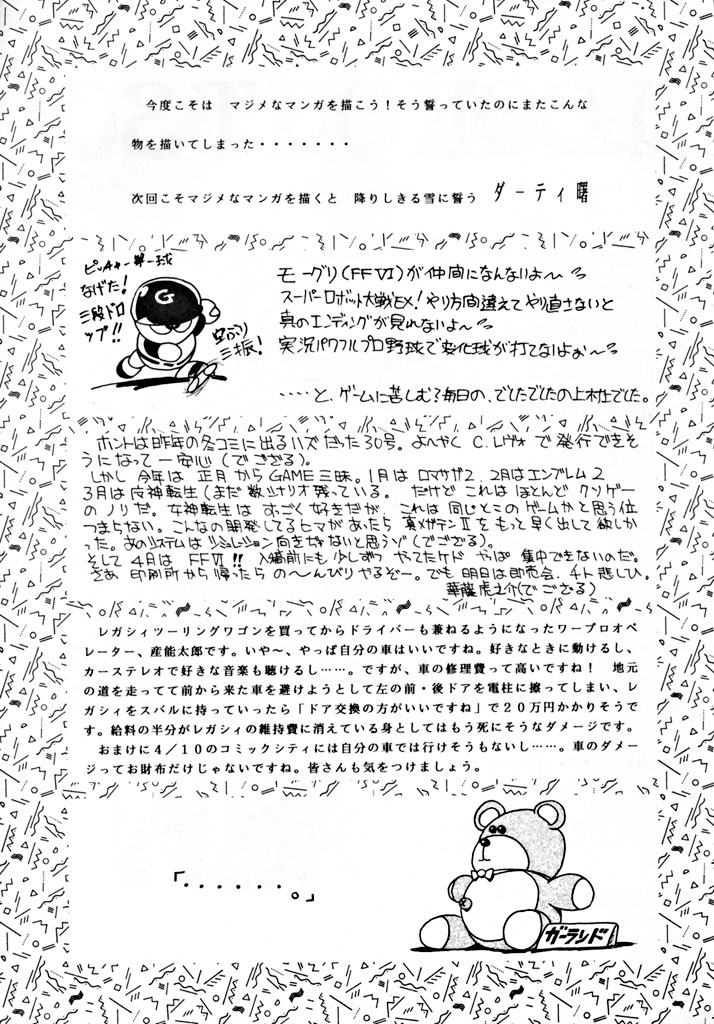 今度こそは　マジメなマンガを描こう！そう誓っていたのにまたこんな
物を描いてしまった・・・・・・・
次回こそマジメなマンガを描くと　降りしきる雪に誓う　ダーティ曙
ピッチャー第一球
なげた！
三段ドロ
ップ!!
G
空ぶり
三振！
モーグリ(FFⅥ)が仲間になんないよ〜
スーパーロボット大戦EX！やり方間違えてやり直さないと
真のエンディングが見れないよ〜
実況パワフルプロ野球で変化球が打てないよぉ〜
‥‥と、ゲームに苦しむ毎日の、でたでたの上木でした。
ホントは昨年の冬コミに出るハズだった30号。よーやく C.レヴォ で発行できそ
うになって一安心（でござる）。
しかし 今年は 正月からGAME三昧。1月は ロマサガ2、2月はエンブレム2
3月は女神転生（まだ数シナリオ残っている。 だけど これは ほとんど クソゲー
のノリだ。女神転生は すごく好きだが、これは同じとこのゲームかと思う位
つまらない。こんなの開発してるヒマがあったら 真メガテンⅡをもっと早く出して欲しか
った。あのシステムは シミュレーション向きじゃないと思うゾ（でござる）。
そして 4月は FFⅥ!! 入稿前にも少しずつ やってたケド やっぱ 集中できないのだ。
さあ 印刷所から帰ったら の〜んびりやるぞー。でも 明日は即売会。チト悲しひ。
華龍虎之介（でござる）
レガシィツーリングワゴンを買ってからドライバーも兼ねるようになったワープロオペ
レーター、産能太郎です。いや〜、やっぱ自分の車はいいですね。好きなときに動けるし、
カーステレオで好きな音楽も聴けるし……。ですが、車の修理費って高いですね！　地元
の道を走ってて前から来た車を避けようとして左の前・後ドアを電柱に擦ってしまい、レガ
シィをスバルに持っていったら「ドア交換の方がいいですね」で２０万円かかりそうで
す。給料の半分がレガシィの維持費に消えている身としてはもう死にそうなダメージです。
おまけに４／１０のコミックシティには自分の車では行けそうもないし……。車のダメー
ジってお財布だけじゃないですね。皆さんも気をつけましょう。
「・・・・・・。」
ガーランド